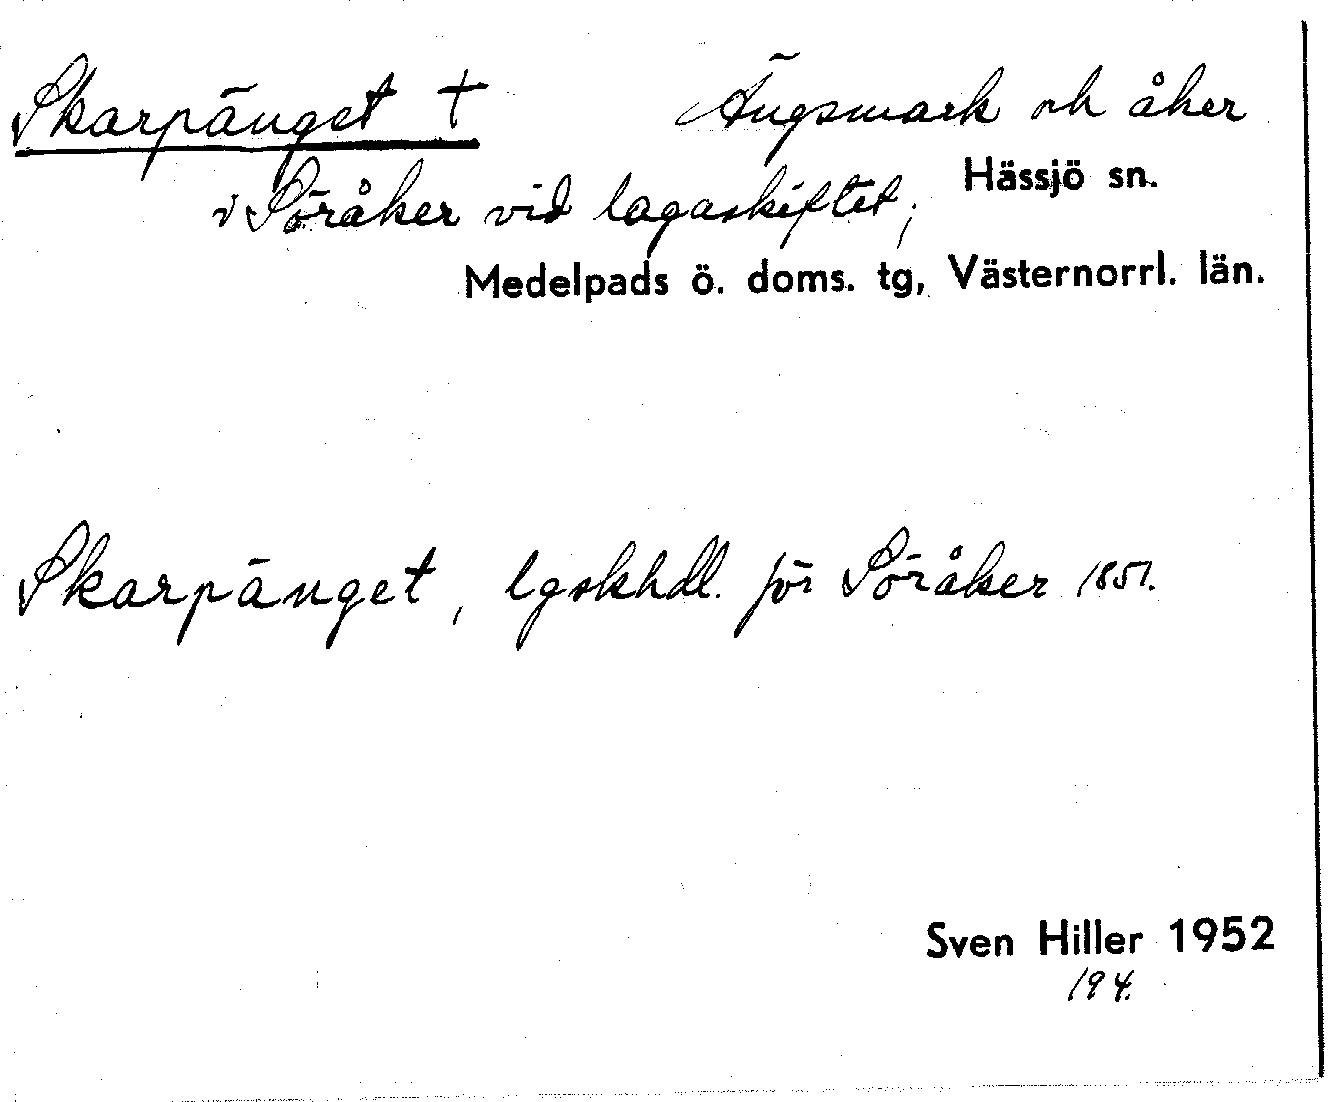 Skarpänget † Ängsmark och åker
Hässjö sn.
i Söråker vid lagaskiftet;
Medelpads ö. doms. tg, Västernorrl. län.
Skarpänget, lgskhdl. för Söråker 1851.
Sven Hiller 1952
194.